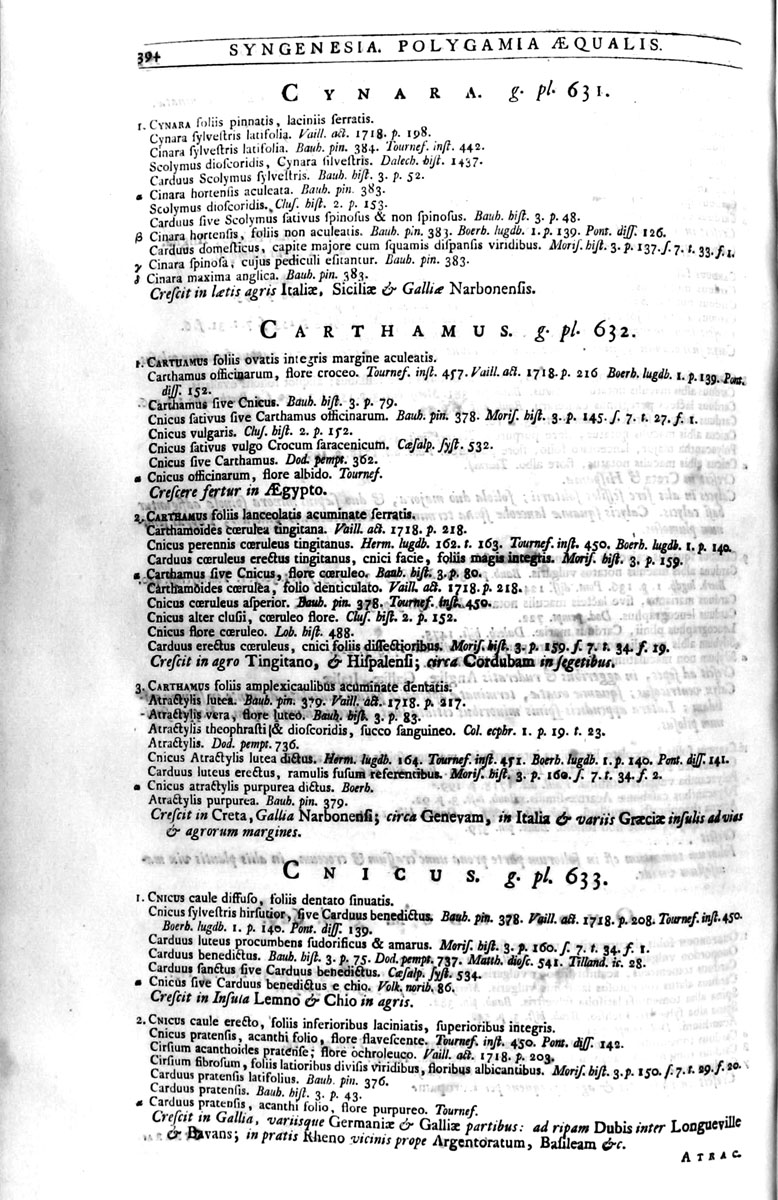 394 SYNGENESIA. POLYGAMIA ÆQUALIS.
CYNARA. g. pl. 631.
1. CYNARA foliis pinnatis, laciniis ſerratis.
Cynara ſylveſtris latifolia. Vaill. act. 1718. p. 198.
Cinara ſylveſtris latifolia. Bauh. pin. 384. Tournef. inſt. 442.
Scolymus dioſcoridis, Cynara ſilveſtris. Dalech. hiſt. 1437.
Carduus Scolymus ſylveſtris. Bauh. hiſt. 3. p. 52.
α Cinara hortenſis aculeata. Bauh. pin. 383.
Scolymus dioſcoridis. Cluſ. hiſt. 2. p. 153.
Carduus ſive Scolymus ſativus ſpinoſus & non ſpinoſus. Bauh. hiſt. 3. p. 48.
β Cinara hortenſis, foliis non aculeatis. Bauh. pin. 383. Boerh. lugdb. 1. p. 139. Pont. diſſ. 126.
Carduus domeſticus, capite majore cum ſquamis diſpanſis viridibus. Moriſ. hiſt. 3. p. 137. ſ. 7. t. 33. f. 1.
γ Cinara ſpinoſa, cujus pediculi eſitantur. Bauh. pin. 383.
δ Cinara maxima anglica. Bauh. pin. 383.
Creſcit in lætis agris Italiæ, Siciliæ & Galliæ Narbonenſis.
CARTHAMUS. g. pl. 632.
1. CARTHAMUS foliis ovatis integris margine aculeatis.
Carthamus officinarum, flore croceo. Tournef. inſt. 457. Vaill. act. 1718. p. 216 Boerh. lugdb. 1. p. 139. Pont.
diſſ. 152.
Carthamus ſive Cnicus. Bauh. hiſt. 3. p. 79.
Cnicus ſativus ſive Carthamus officinarum. Bauh. pin. 378. Moriſ. hiſt. 3. p. 145. ſ. 7. t. 27. f. 1.
Cnicus vulgaris. Cluſ. hiſt. 2. p. 152.
Cnicus ſativus vulgo Crocum ſaracenicum. Cæſalp. ſyſt. 532.
Cnicus ſive Carthamus. Dod. pempt. 362.
α Cnicus officinarum, flore albido. Tournef.
Creſcere fertur in Ægypto.
2. CARTHAMUS foliis lanceolatis acuminate ſerratis.
Carthamoides cœrulea tingitana. Vaill. act. 1718. p. 218.
Cnicus perennis cœruleus tingitanus. Herm. lugdb. 162. t. 163. Tournef. inſt. 450. Boerh. lugdb. 1. p. 140.
Carduus cœruleus erectus tingitanus, cnici facie, foliis magis integris. Moriſ. hiſt. 3. p. 159.
α Carthamus ſive Cnicus, flore cœruleo. Bauh. hiſt. 3. p. 80.
Carthamoides cœrulea, folio denticulato. Vaill. act. 1718. p. 218.
Cnicus cœruleus aſperior. Bauh. pin. 378. Tournef. inſt. 450.
Cnicus alter cluſii, cœruleo flore. Cluſ. hiſt. 2. p. 152.
Cnicus flore cœruleo. Lob. hiſt. 488.
Carduus erectus cœruleus, cnici foliis diſſectioribus. Moriſ. hiſt. 3. p. 159. ſ. 7. t. 34. f. 19.
Creſcit in agro Tingitano, & Hiſpalenſi; circa Cordubam in ſegetibus.
3. CARTHAMUS foliis amplexicaulibus acuminate dentatis.
Atractylis lutea. Bauh. pin. 379. Vaill. act. 1718. p. 217.
Atractylis vera, flore luteo. Bauh. hiſt. 3. p. 83.
Atractylis theophraſti & dioſcoridis, ſucco ſanguineo. Col. ecphr. 1. p. 19. t. 23.
Atractylis. Dod. pempt. 736.
Cnicus Atractylis lutea dictus. Herm. lugdb. 164. Tournef. inſt. 451. Boerh. lugdb. 1. p. 140. Pont. diſſ. 141.
Carduus luteus erectus, ramulis fuſum referentibus. Moriſ. hiſt. 3. p. 160. ſ. 7. t. 34. f. 2.
α Cnicus atractylis purpurea dictus. Boerh.
Atractylis purpurea. Bauh. pin. 379.
Creſcit in Creta, Gallia Narbonenſi; circa Genevam, in Italia & variis Græciæ inſulis ad vias
& agrorum margines.
CNICUS. g. pl. 633.
1. CNICUS caule diffuſo, foliis dentato ſinuatis.
Cnicus ſylveſtris hirſutior, ſive Carduus benedictus. Bauh. pin. 378. Vaill. act. 1718. p. 208. Tournef. inſt. 450.
Boerh. lugdb. 1. p. 140. Pont. diſſ. 139.
Carduus luteus procumbens ſudorificus & amarus. Moriſ. hiſt. 3. p. 160. ſ. 7. t. 34. f. 1.
Carduus benedictus. Bauh. hiſt. 3. p. 75. Dod. pempt. 737. Matth. dioſc. 541. Tilland. ic. 28.
Carduus ſanctus ſive Carduus benedictus. Cæſalp. ſyſt. 534.
α Cnicus ſive Carduus benedictus e chio. Volk. norib. 86.
Creſcit in Inſula Lemno & Chio in agris.
2. CNICUS caule erecto, foliis inferioribus laciniatis, ſuperioribus integris.
Cnicus pratenſis, acanthi folio, flore flaveſcente. Tournef. inſt. 450. Pont. diſſ. 142.
Cirſium acanthoides pratenſe; flore ochroleuco. Vaill. act. 1718. p. 203.
Cirſium fibroſum, foliis latioribus diviſis viridibus, floribus albicantibus. Moriſ. hiſt. 3. p. 150. ſ. 7. t. 29. f. 20.
Carduus pratenſis latifolius. Bauh. pin. 376.
Carduus pratenſis. Bauh. hiſt. 3. p. 43.
α Carduus pratenſis, acanthi folio, flore purpureo. Tournef.
Creſcit in Gallia, variisque Germaniæ & Galliæ partibus: ad ripam Dubis inter Longueville
& Bavans; in pratis Rheno vicinis prope Argentoratum, Baſileam &c.
ATRAC.